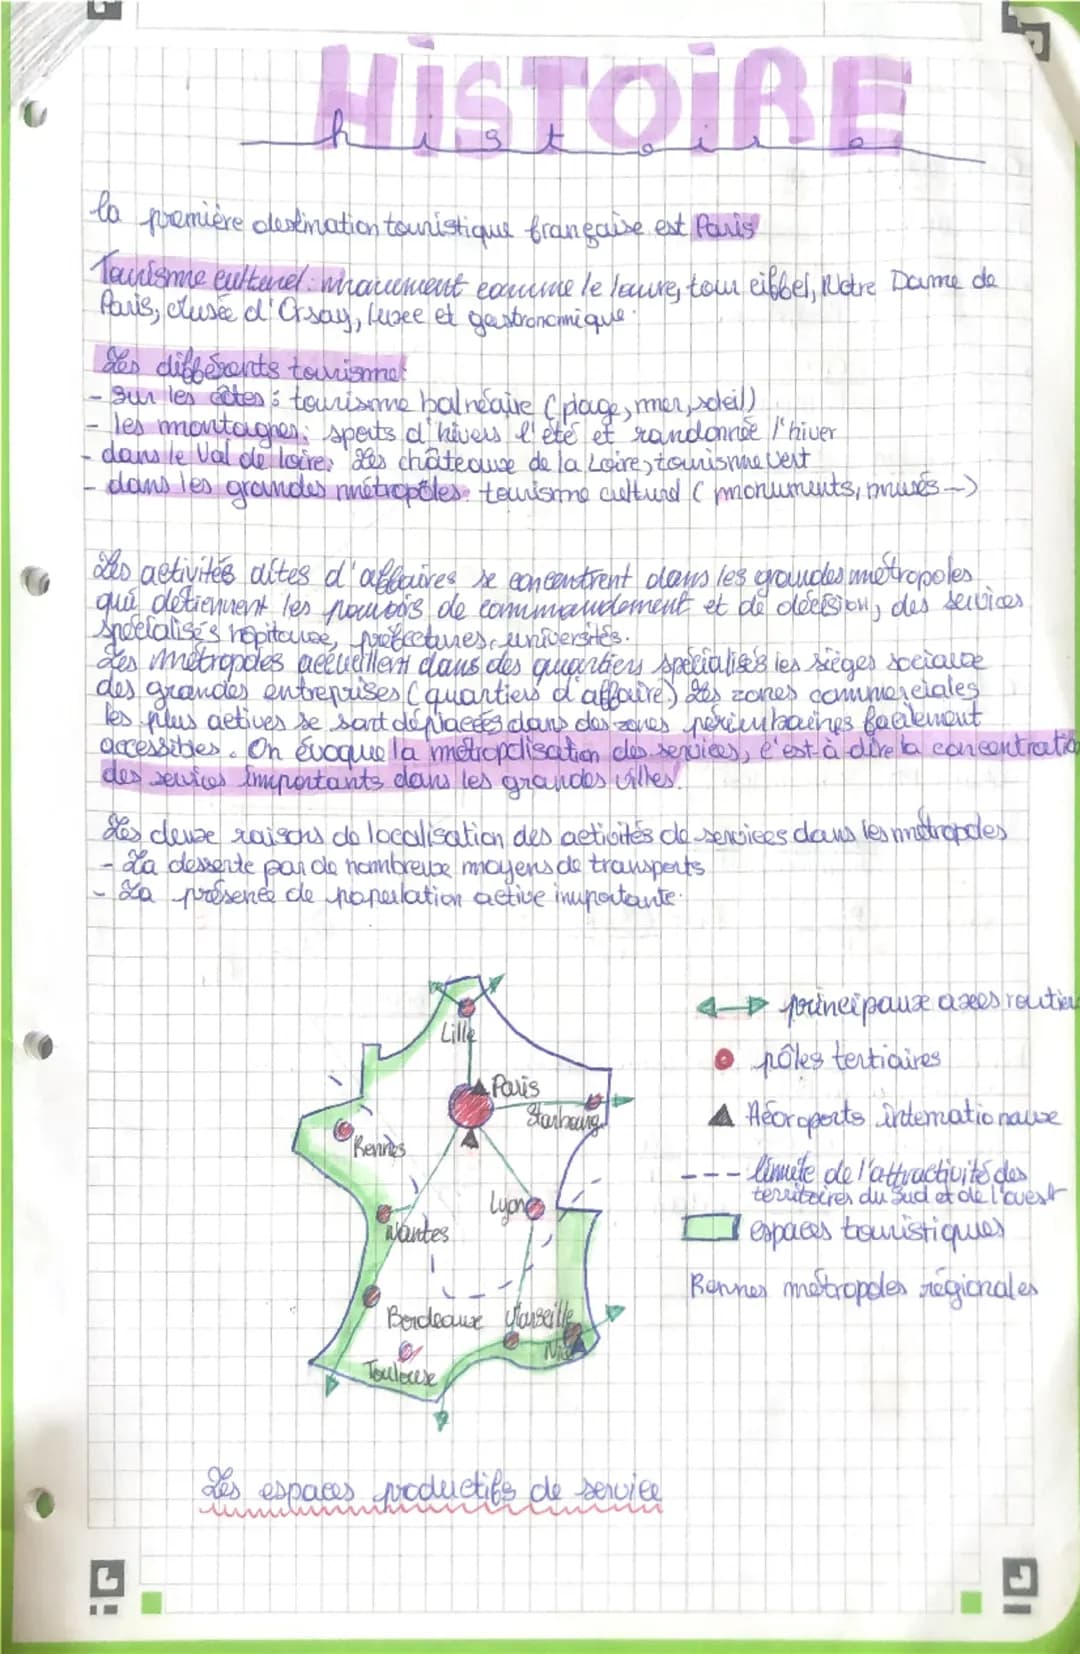 HiSTOiRE
histoire
la première destination touristique française est Paris
Tourisme culturel: monument comme le louvre, tour eiffel, Notre Dame de
Paris, Musée d'Orsay, luxe et gastronomique.
Les différents tourisme:
- sur les côtes: tourisme balnéaire (plage, mer, soleil)
- les montagnes: sports d'hivers l'été et randonnée l'hiver
- dans le Val de loire, les châteaux de la Loire, tourisme vert
- dans les grandes métropôles: tourisme culturel (monuments, musés...)
Les activités dites d'affaires se concentrent dans les grandes métropoles
qui détiennent les pouvoirs de commandement et de décision, des services
spécialisés hôpitaux, préfectures, universités.
Les métropoles accueillent dans des quartiers spécialisés les sièges sociaux
des grandes entreprises (quartiers d'affaire). Les zones commerciales
les plus actives se sont déplacées dans des zones périurbaines facilement
accessibles. On évoque la métropolisation des services, c'est-à dire la concentratio
des services importants dans les grandes villes.
Les deux raisons de localisation des activités de services dans les métropoles
- La desserte par de nombreux moyens de transports
- La présence de population active importante.
principaux axes routier
Lille
pôles tertiaires
Paris
Starbourg
Aéoroports internationaux
Rennes
limite de l'attractivité des
territoires du Sud et de l'ouest
Lyon
Nantes
espaces touristiques
Rennes métropoles régionales
Bordeaux Marseille
Nice
Toulouse
Les espaces productifs de service